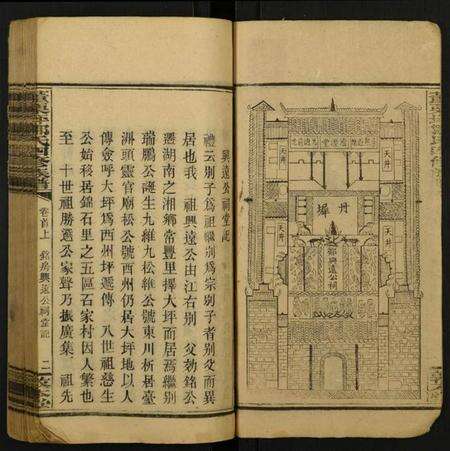 天井
天井
丹墀
天井
天井
鄒興遠公祠
興遠公祠堂記
禮云別子爲祖繼別爲宗別子者別父而異
居也我 祖興遠公由江右別 父勃銘公
遷湖南之湘鄉常豐里擇大坪而居焉繼別
瑞鵬公誕生九維九松維公號東川析居臺
洲頭靈官廟松公號西州仍居大坪地以人
傳僉呼大坪爲西州坪遞傳 八世祖慈生
公始移居錦石里之五區石家村因人繁也
至 十世祖勝遜公家聲乃振廣集 祖先
卷首上 銘房興遠公祠堂記 二